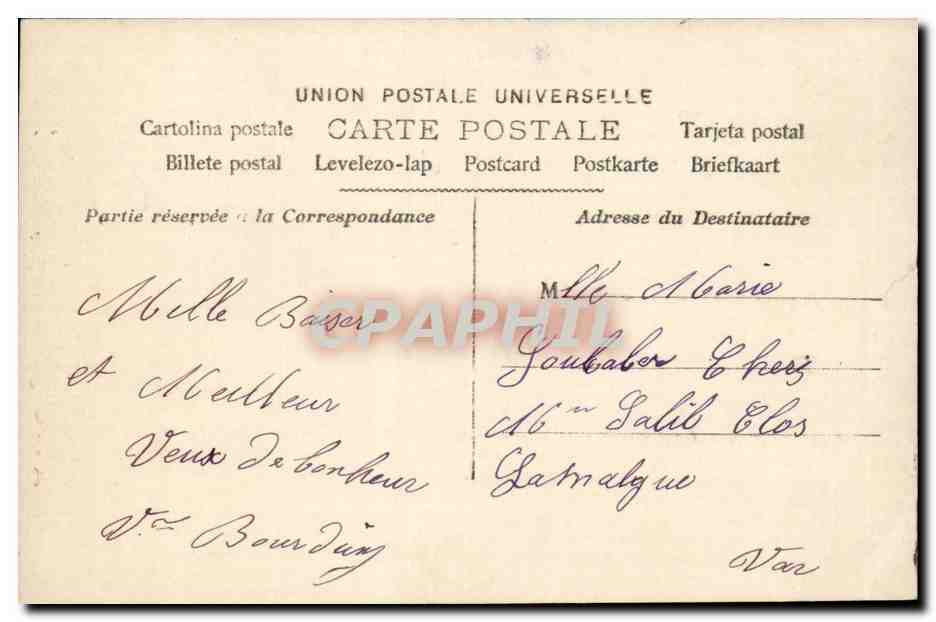 UNION POSTALE UNIVERSELLE
Cartolina postale CARTE POSTALE Tarjeta postal
Billete postal Levelezo-lap Postcard Postkarte Briefkaart
Partie réservée à la Correspondance
Adresse du Destinataire
Mille Baiser
et Meilleur
Veux de bonheur
Vve
Mlle Marie
Chez
Mr Salil Clos
Lamalgue
Var
CPAPHIL